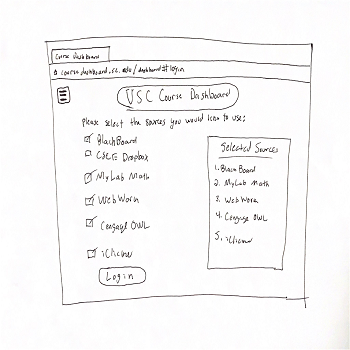 Course Dashboard
course.dashboard.sc.edu/dashboard#login
USC Course Dashboard
Please select the sources you would like to use:
BlackBoard
CSCE Dropbox
MyLab Math
WebWork
Cengage OWL
iClicker
Login
Selected Sources
1. BlackBoard
2. MyLab Math
3. WebWork
4. Cengage OWL
5. iClicker